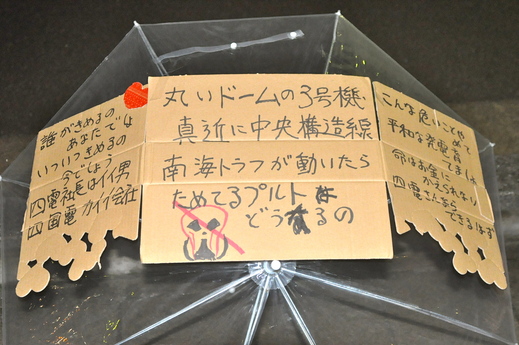 誰がきめるの
あなたでしょ
いついつきめるの
今でしょう
四電社長はイイ男
四国電力イイ会社
丸いドームの3号機
真近に中央構造線
南海トラフが動いたら
ためてるプルトは
どうなるの
こんな危いことやめて
平和な発電
命はお金に
かえられない
四電さんなら
できるはず